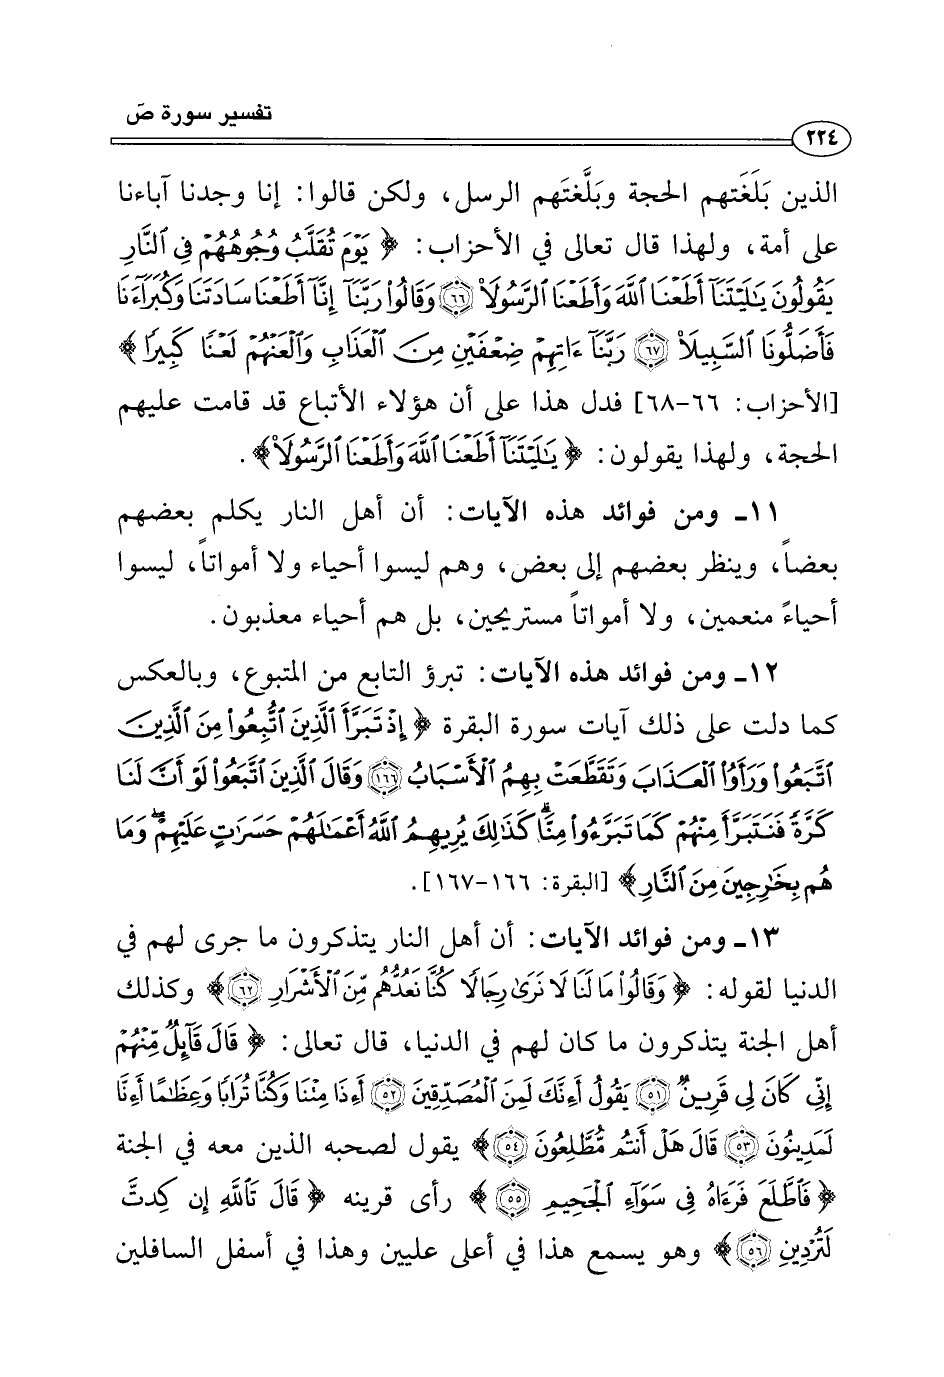 تفسير سورة صَ
٢٢٤
الذين بَلَغَتهم الحجة وبَلَّغتَهم الرسل، ولكن قالوا: إنا وجدنا آباءنا
على أمة، ولهذا قال تعالى في الأحزاب: ﴿ يَوْمَ تُقَلَّبُ وُجُوهُهُمْ فِي ٱلنَّارِ
يَقُولُونَ يَٰلَيْتَنَآ أَطَعْنَا ٱللَّهَ وَأَطَعْنَا ٱلرَّسُولَا۠ ٦٦ وَقَالُوا۟ رَبَّنَآ إِنَّآ أَطَعْنَا سَادَتَنَا وَكُبَرَآءَنَا
فَأَضَلُّونَا ٱلسَّبِيلَا۠ ٦٧ رَبَّنَآ ءَاتِهِمْ ضِعْفَيْنِ مِنَ ٱلْعَذَابِ وَٱلْعَنْهُمْ لَعْنًا كَبِيرًا ﴾
[الأحزاب: ٦٦-٦٨] فدل هذا على أن هؤلاء الأتباع قد قامت عليهم
الحجة، ولهذا يقولون: ﴿ يَٰلَيْتَنَآ أَطَعْنَا ٱللَّهَ وَأَطَعْنَا ٱلرَّسُولَا۠ ﴾.
١١ـ ومن فوائد هذه الآيات: أن أهل النار يكلم بعضهم
بعضاً، وينظر بعضهم إلى بعض، وهم ليسوا أحياء ولا أمواتاً، ليسوا
أحياءً منعمين، ولا أمواتاً مستريحين، بل هم أحياء معذبون.
١٢ـ ومن فوائد هذه الآيات: تبرؤ التابع من المتبوع، وبالعكس
كما دلت على ذلك آيات سورة البقرة ﴿ إِذْ تَبَرَّأَ ٱلَّذِينَ ٱتُّبِعُوا۟ مِنَ ٱلَّذِينَ
ٱتَّبَعُوا۟ وَرَأَوُا۟ ٱلْعَذَابَ وَتَقَطَّعَتْ بِهِمُ ٱلْأَسْبَابُ ١٦٦ وَقَالَ ٱلَّذِينَ ٱتَّبَعُوا۟ لَوْ أَنَّ لَنَا
كَرَّةً فَنَتَبَرَّأَ مِنْهُمْ كَمَا تَبَرَّءُوا۟ مِنَّاۗ كَذَٰلِكَ يُرِيهِمُ ٱللَّهُ أَعْمَٰلَهُمْ حَسَرَٰتٍ عَلَيْهِمْۖ وَمَا
هُم بِخَٰرِجِينَ مِنَ ٱلنَّارِ ﴾ [البقرة: ١٦٦-١٦٧].
١٣ـ ومن فوائد الآيات: أن أهل النار يتذكرون ما جرى لهم في
الدنيا لقوله: ﴿ وَقَالُوا۟ مَا لَنَا لَا نَرَىٰ رِجَالًا كُنَّا نَعُدُّهُم مِّنَ ٱلْأَشْرَارِ ٦٢ ﴾ وكذلك
أهل الجنة يتذكرون ما كان لهم في الدنيا، قال تعالى: ﴿ قَالَ قَآئِلٌ مِّنْهُمْ
إِنِّي كَانَ لِي قَرِينٌ ٥١ يَقُولُ أَءِنَّكَ لَمِنَ ٱلْمُصَدِّقِينَ ٥٢ أَءِذَا مِتْنَا وَكُنَّا تُرَابًا وَعِظَٰمًا أَءِنَّا
لَمَدِينُونَ ٥٣ قَالَ هَلْ أَنتُم مُّطَّلِعُونَ ٥٤ ﴾ يقول لصحبه الذين معه في الجنة
﴿ فَٱطَّلَعَ فَرَءَاهُ فِي سَوَآءِ ٱلْجَحِيمِ ٥٥ ﴾ رأى قرينه ﴿ قَالَ تَٱللَّهِ إِن كِدتَّ
لَتُرْدِينِ ٥٦ ﴾ وهو يسمع هذا في أعلى عليين وهذا في أسفل السافلين